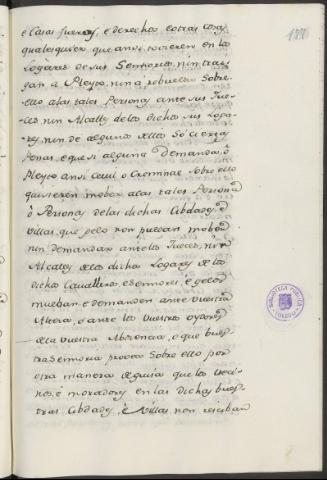 é Casas fueros, é derechos é otras cosas
qualesquier, que ansi tovieren en los
Logares de sus Señorios, nin trai-
gan à Pleyto, nin à rebuelta sobre
ello à las tales Personas ante sus Jue-
ces, nin Alcaldes de los dichos sus Loga-
res, nin de alguno dellos so ciertas
Penas, é que si alguna demanda, ò
Pleyto ansi Cevil ò Criminal sobre ello
quisieren mober à las tales Persona
ò Personas de las dichas Cibdades, é
Villas, que gelo non puedan mober
nin demandar ante los Jueces, nin
Alcaldes de los dichos Logares de los
dichos Cavalleros é Señores, é gelos
mueban é demanden ante vuestra
Alteza, ò ante los vuestros oydores
de la vuestra Abdiencia, ò que vues-
tra Señoria provea sobre ello por
otra manera de guisa que los veci-
nos, é moradores en las dichas vues-
tras Cibdades, é Villas non reciban
BIBLIOTECA PUBLICA
TOLEDO